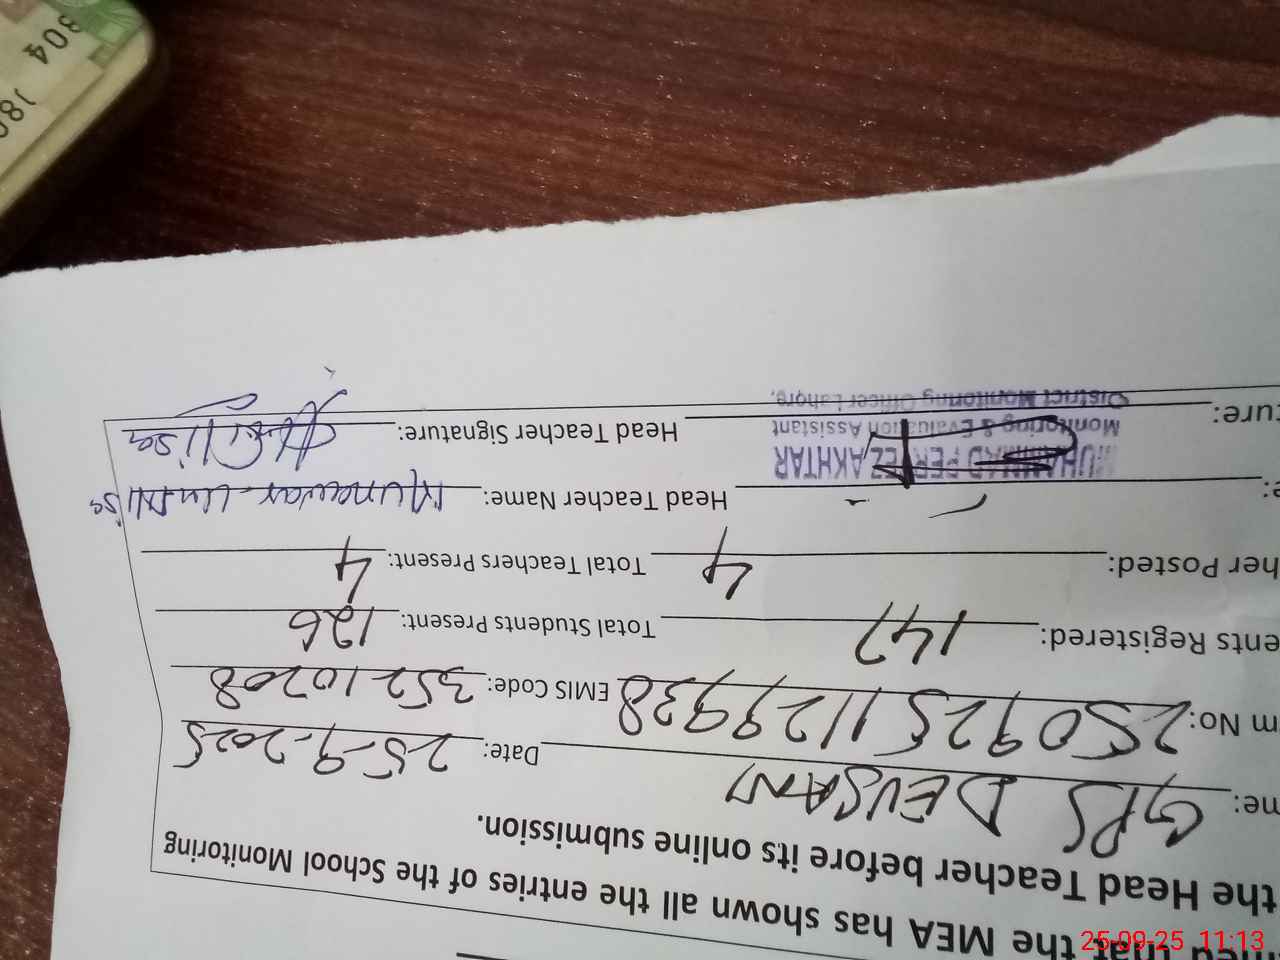 med that the MEA has shown all the entries of the School Monitoring
the Head Teacher before its online submission.
ne: GPS DEUSANY Date: 25-9-2025
m No: 2509251129938 EMIS Code: 35210208
ents Registered: 147 Total Students Present: 126
her Posted: 4 Total Teachers Present: 4
e: MUHAMMAD PERVEZ AKHTAR Head Teacher Name: Munawar-Un-Nisa
Monitoring & Evaluation Assistant
ture: District Monitoring Officer Lahore. Head Teacher Signature:
304
180
25-09-25 11:13